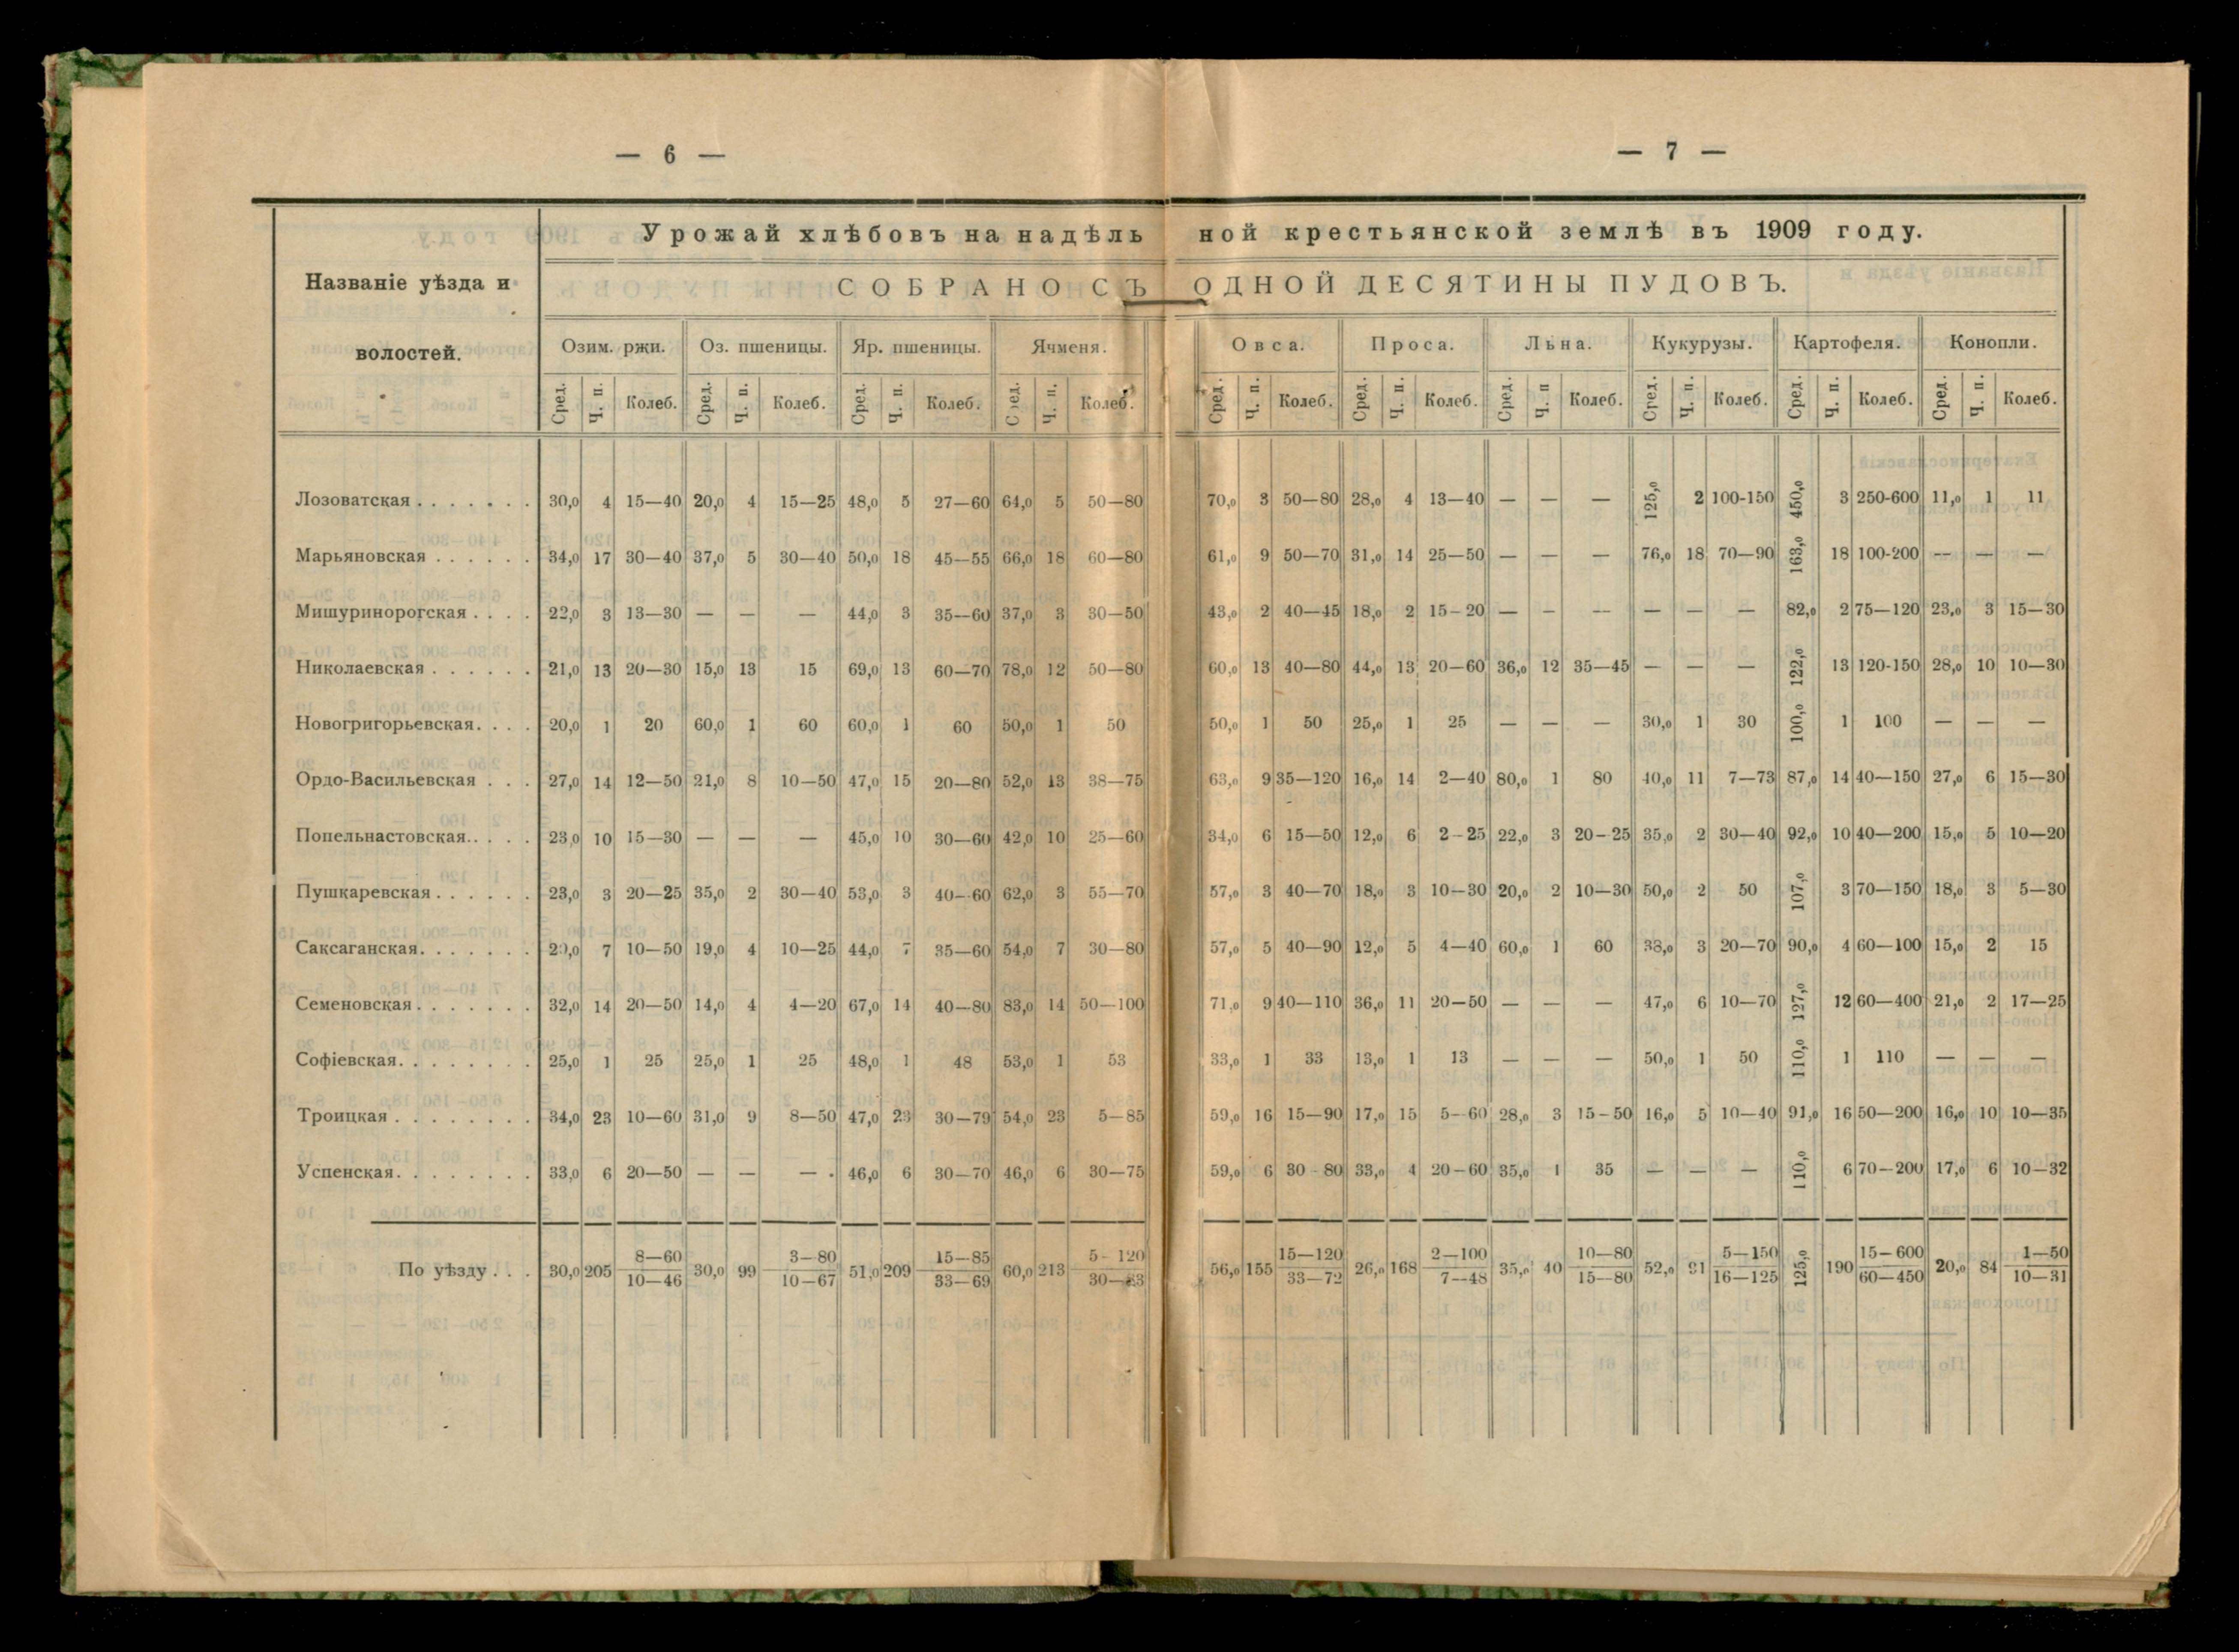 — 6 —
— 7 —
Урожай хлѣбовъ на надѣль ной крестьянской землѣ въ 1909 году.
Названіе уѣзда и волостей.
СОБРАНО СЪ ОДНОЙ ДЕСЯТИНЫ ПУДОВЪ.
Озим. ржи. Оз. пшеницы. Яр. пшеницы. Ячменя. Овса. Проса. Льна. Кукурузы. Картофеля. Конопли.
Сред. Ч. п. Колеб. Сред. Ч. п. Колеб. Сред. Ч. п. Колеб. Сред. Ч. п. Колеб. Сред. Ч. п. Колеб. Сред. Ч. п. Колеб. Сред. Ч. п Колеб. Сред. Ч. п. Колеб. Сред. Ч. п. Колеб. Сред. Ч. п. Колеб.
Лозоватская . . . . . . . 30,0 4 15—40 20,0 4 15—25 48,0 5 27—60 64,0 5 50—80 70,0 3 50—80 28,0 4 13—40 — — — 125,0 2 100-150 450,0 3 250-600 11,0 1 11
Марьяновская . . . . . . 34,0 17 30—40 37,0 5 30—40 50,0 18 45—55 66,0 18 60—80 61,0 9 50—70 31,0 14 25—50 — — — 76,0 18 70—90 163,0 18 100-200 — — —
Мишуринорогская . . . . 22,0 3 13—30 — — — 44,0 3 35—60 37,0 3 30—50 43,0 2 40—45 18,0 2 15–20 — — — — — — 82,0 2 75—120 23,0 3 15—30
Николаевская . . . . . . 21,0 13 20—30 15,0 13 15 69,0 13 60—70 78,0 12 50—80 60,0 13 40—80 44,0 13 20—60 36,0 12 35—45 — — — 122,0 13 120-150 28,0 10 10—30
Новогригорьевская. . . . 20,0 1 20 60,0 1 60 60,0 1 60 50,0 1 50 50,0 1 50 25,0 1 25 — — — 30,0 1 30 100,0 1 100 — — —
Ордо-Васильевская . . . 27,0 14 12—50 21,0 8 10—50 47,0 15 20—80 52,0 13 38—75 63,0 9 35—120 16,0 14 2—40 80,0 1 80 40,0 11 7—73 87,0 14 40—150 27,0 6 15—30
Попельнастовская.. . . . 23,0 10 15—30 — — — 45,0 10 30—60 42,0 10 25—60 34,0 6 15—50 12,0 6 2–25 22,0 3 20–25 35,0 2 30—40 92,0 10 40—200 15,0 5 10—20
Пушкаревская . . . . . . 23,0 3 20—25 35,0 2 30—40 53,0 3 40—60 62,0 3 55—70 57,0 3 40—70 18,0 3 10—30 20,0 2 10—30 50,0 2 50 107,0 3 70—150 18,0 3 5—30
Саксаганская. . . . . . . 7 10—50 19,0 4 10—25 44,0 7 35—60 54,0 7 30—80 57,0 5 40—90 12,0 5 4—40 60,0 1 60 38,0 3 20—70 90,0 4 60—100 15,0 2 15
Семеновская . . . . . . . 32,0 14 20—50 14,0 4 4—20 67,0 14 40—80 83,0 14 50—100 71,0 9 40—110 36,0 11 20—50 — — — 47,0 6 10—70 127,0 12 60—400 21,0 2 17—25
Софіевская. . . . . . . . 25,0 1 25 25,0 1 25 48,0 1 48 53,0 1 53 33,0 1 33 13,0 1 13 — — — 50,0 1 50 110,0 1 110 — — —
Троицкая . . . . . . . . 34,0 23 10—60 31,0 9 8—50 47,0 23 30—79 54,0 23 5—85 59,0 16 15—90 17,0 15 5—60 28,0 3 15–50 16,0 5 10—40 91,0 16 50—200 16,0 10 10—35
Успенская. . . . . . . . 33,0 6 20—50 — — — 46,0 6 30—70 46,0 6 30—75 59,0 6 30 80 33,0 4 20–60 35,0 1 35 — — — 110,0 6 70—200 17,0 6 10—32
8—60 3—80 15—85 5–120 15—120 2—100 10—80 5—150 15—600 1—50
По уѣзду . . . 30,0 205 30,0 99 51,0 209 60,0 213 56,0 155 26,0 168 35,0 40 52,0 125,0 190 20,0 84
10—46 10—67 33—69 33—72 7—48 15—80 16—125 60—450 10—31